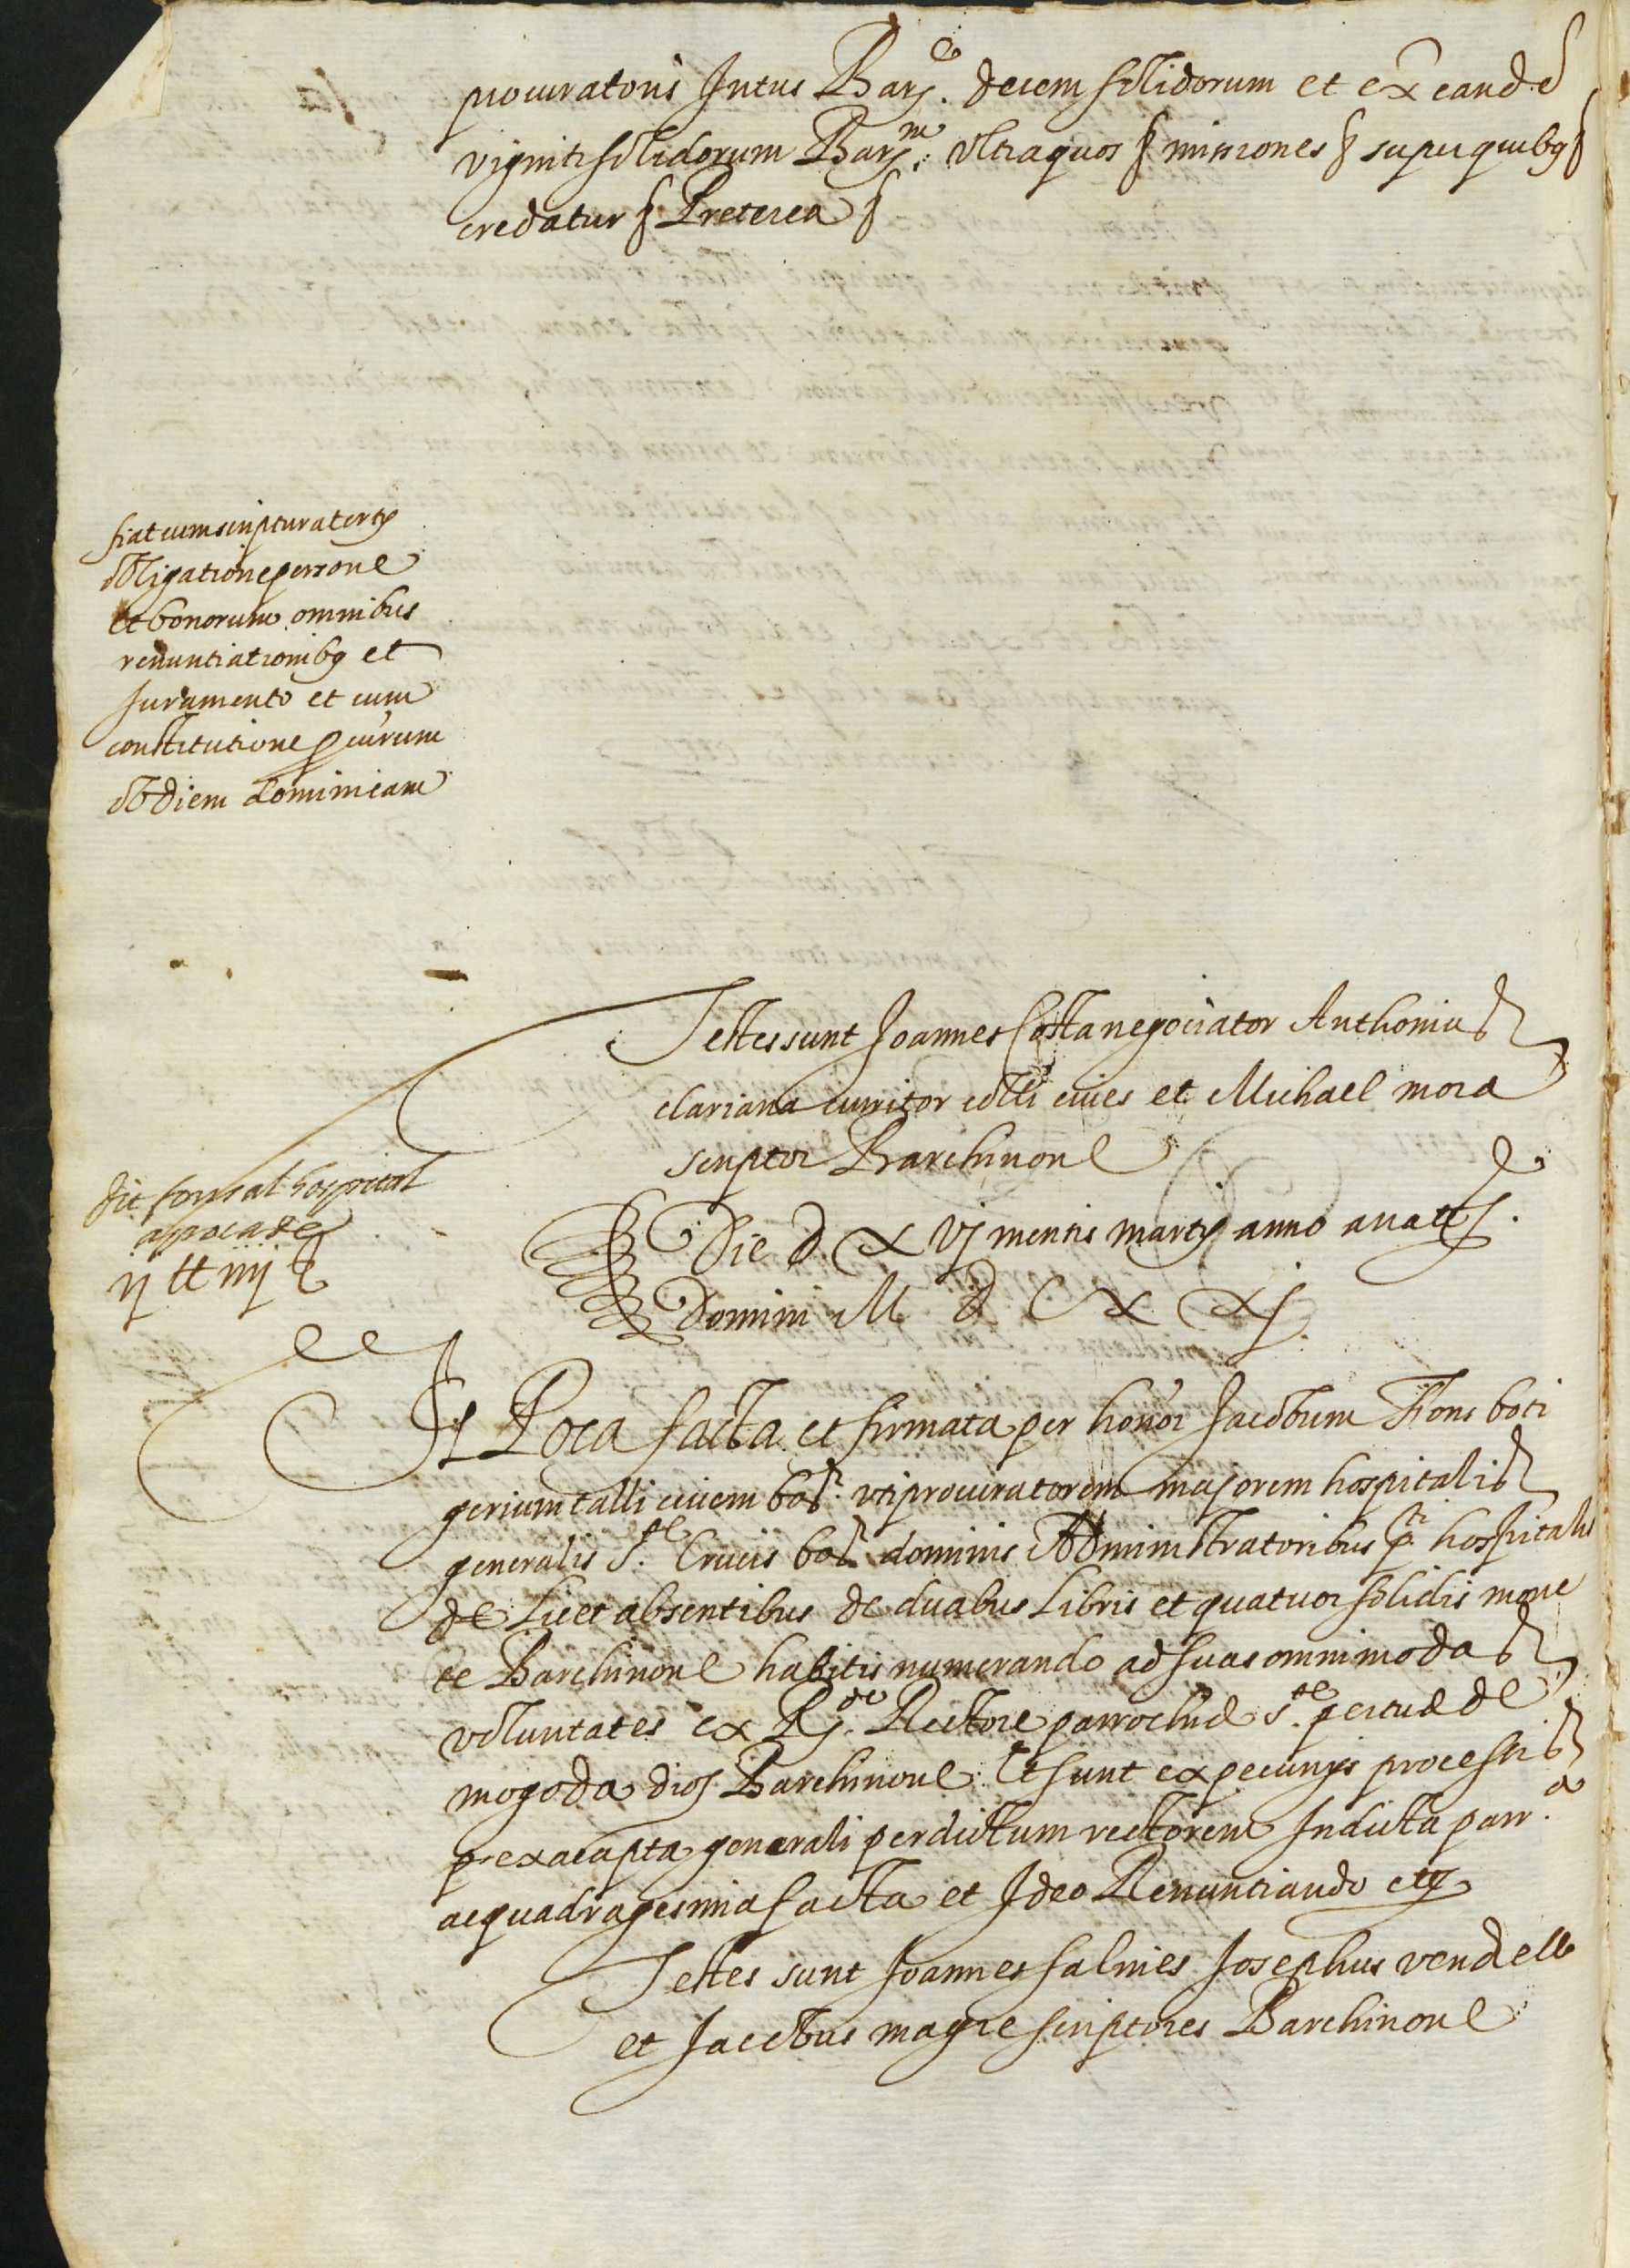 procuratoris Intus Barᵉ. decem solidorum et ex eand̄
viginti solidorum Barᵐ: Ultra quos § missiones § super quibg §
credatur § Preterea §
fiat cum scriptura tertÿ
obligatione persone
et bonorum omnibus
renuntiationibg et
Juramento et cum
constitutione ꝓcūrum
ob diem dominicam
Testes sunt Joannes Costa negociator Anthonius
clariana curritor colli cives et Michael mora
scriptor Barchinone
dit fons al hospital
apoca de
ij ℔ iiij ß
Die d. x vj mensis martÿ anno a natᵉ.
Domini M d C x xj.
Apoca facta et firmata per honor Jacobum Fons boti
gerium talli civem bar. uti procuratorem majorem hospitalis
generalis Sᵗᵉ. Crucis bar dominis Administratoribus pᵗⁱ. hospitalis
de Licet absentibus de duabus Libris et quatuor solidis mone
te Barchinone habitis numerando ad suas omnimodas
voluntates ex Rᵈᵒ. Rectore parrochie sᵗᵉ. perture de
mogoda dioc Barchinone Et sunt ex pecunÿs processis
ex acapta generali per dictum rectorem In dicta parrᵃ.
ac quadragesima facta et Ideo Renuntiando etc
Testes sunt Joannes salvies Josephus vendrell
et Jacobus magre scriptores Barchinone